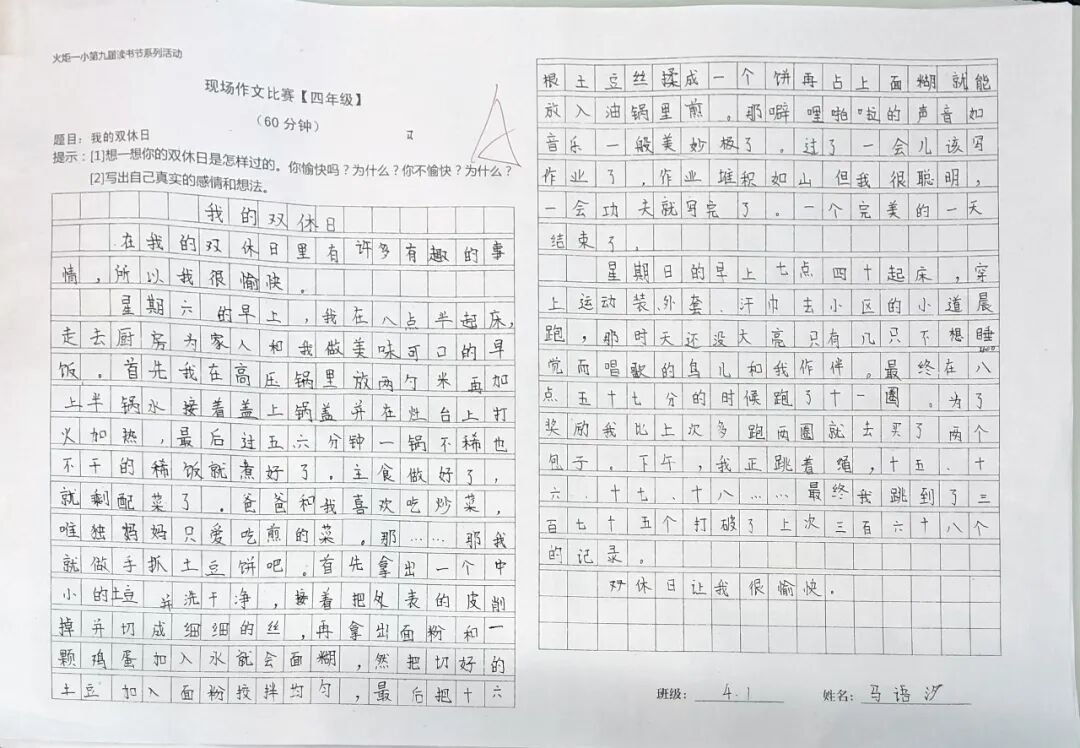 火炬一小第九届读书节系列活动
现场作文比赛【四年级】
（60分钟）
题目：我的双休日
提示：[1]想一想你的双休日是怎样过的。你愉快吗？为什么？你不愉快？为什么？
[2]写出自己真实的感情和想法。
我的双休日
在我的双休日里有许多有趣的事
情，所以我很愉快。
星期六的早上，我在八点半起床，
走去厨房为家人和我做美味可口的早
饭。首先我在高压锅里放两勺米再加
上半锅水接着盖上锅盖并在灶台上打
火加热，最后过五、六分钟一锅不稀也
不干的稀饭就煮好了。主食做好了，
就剩配菜了。爸爸和我喜欢吃炒菜，
唯独妈妈只爱吃煎的菜。那……那我
就做手抓土豆饼吧。首先拿出一个中
小的土豆并洗干净，接着把外表的皮削
掉并切成细细的丝，再拿出面粉和一
颗鸡蛋加入水就会面糊，然把切好的
土豆加入面粉搅拌均匀，最后把十六
根土豆丝揉成一个饼再占上面糊就能
放入油锅里煎。那噼哩啪啦的声音如
音乐一般美妙极了。过了一会儿该写
作业了，作业堆积如山但我很聪明，
一会功夫就写完了。一个完美的一天
结束了。
星期日的早上七点四十起床，穿
上运动装、外套、汗巾去小区的小道晨
跑，那时天还没大亮只有几只不想睡
觉而唱歌的鸟儿和我作伴。最终在八
点五十七分的时候跑了十一圈。为了
奖励我比上次多跑两圈就去买了两个
包子。下午，我正跳着绳，十五、十
六、十七、十八……最终我跳到了三
百七十五个打破了上次三百六十八个
的记录。
双休日让我很愉快。
班级：4.1 姓名：马语汐